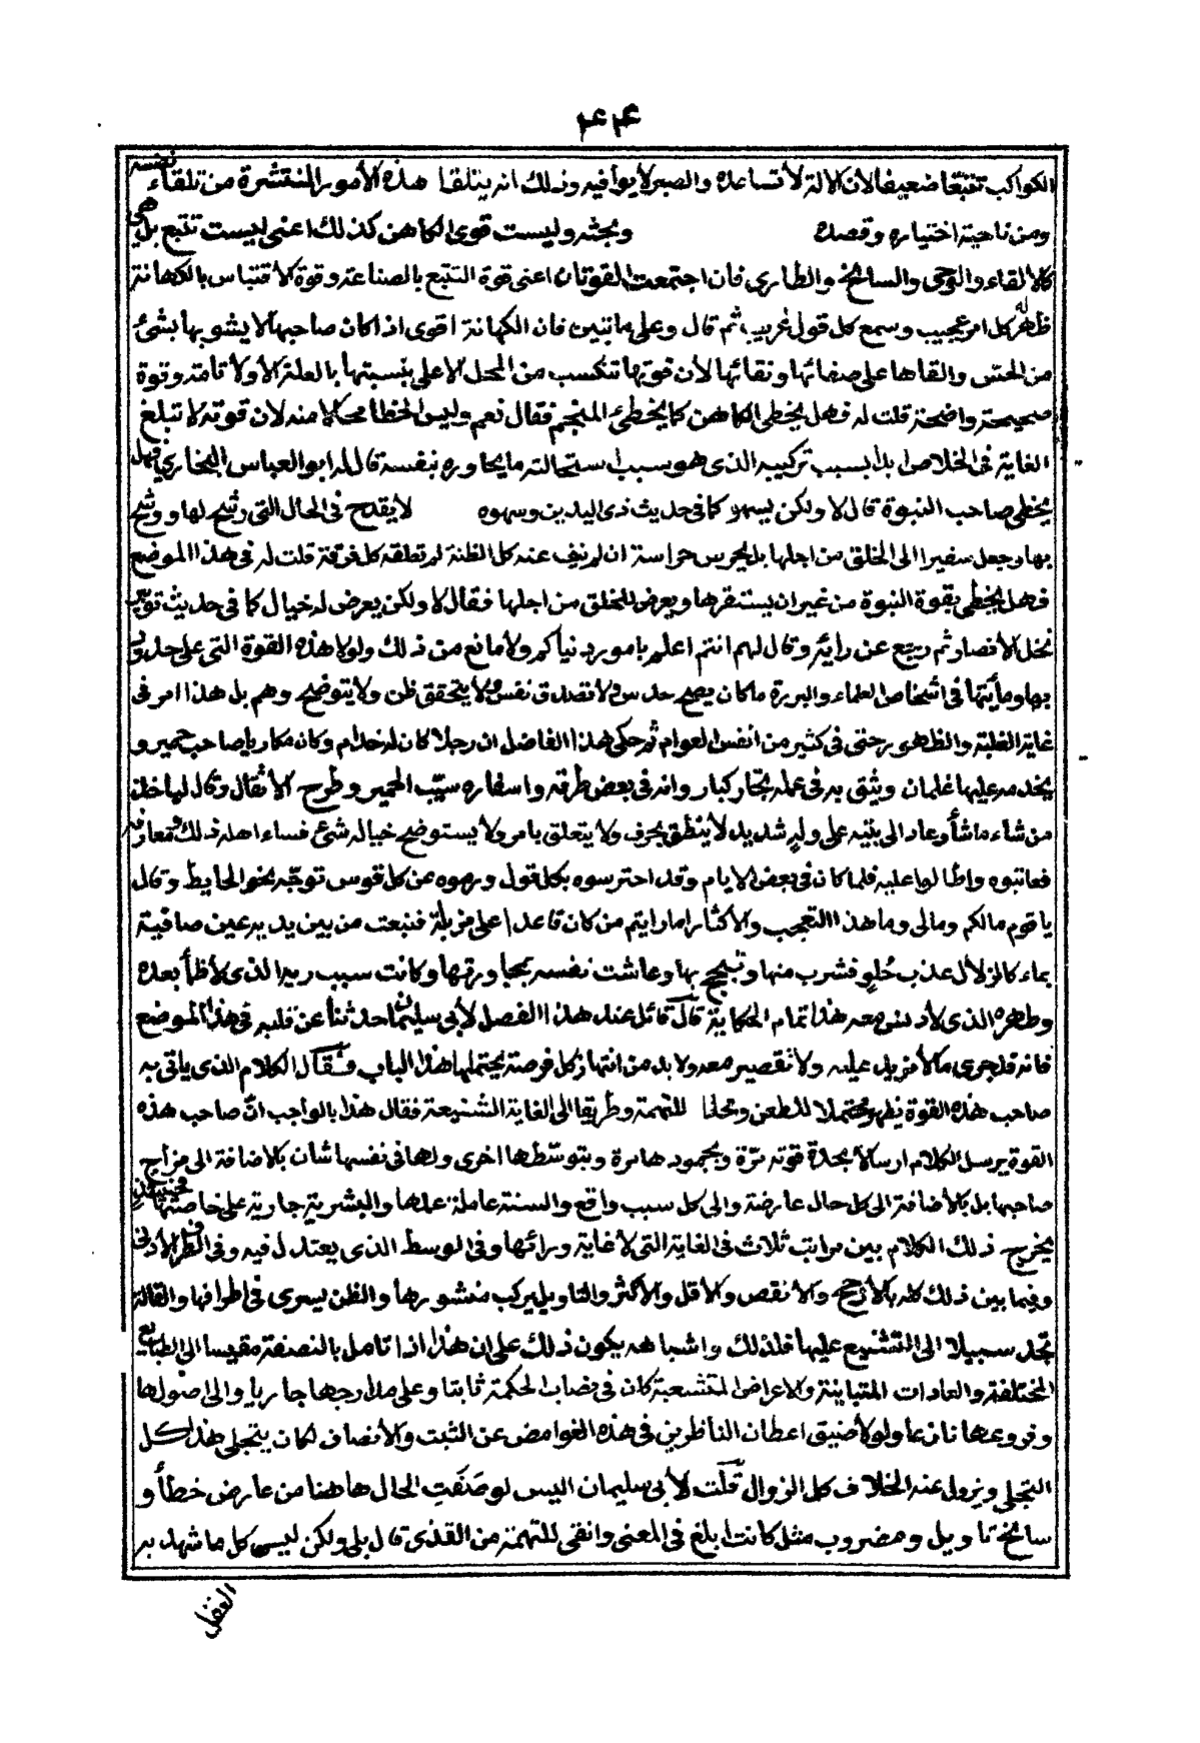 ٤٤
الكواكب تتبّعا ضعيفا لان الالة لا تساعده والصبر لا يوافيه وذلك انه يتلقا هذه الأمور المنتشرة من تلقاء نفسه
ومن ناحية اختياره وقصده وبحثه وليست قوى الكاهن كذلك اعنى ليست تتبع بل هى
كالالقاء والوحى والسانح والطارى فان اجتمعت القوتان اعنى قوة التتبع بالصناعة وقوة الاقتباس بالكهانة
ظهر له كل امر عجيب وسمع كل قول غريب ثم قال وعلى ما تبين فان الكهانة اقوى اذا كان صاحبها لا يشوبها بشئ
من الحس والقاها على صفائها ونقائها لأن قوتها تنكسب من المحل الاعلى بنسبتها بالعلة الأولا تامة وقوة
صحيحة واضحة قلت له فهل يخطى الكاهن كما يخطئ المنجم فقال نعم وليس الخطا محالا منه لان قوته لا تبلغ
الغاية فى الخلاص ابدا بسبب تركيبه الذى هو سبب استحالته ما يحاوره بنفسه قال له ابو العباس البخارى فهل
يخطى صاحب النبوة قال لا ولكن يسهو كما فى حديث ذى اليدين وسهوه لا يقدح فى الحال التى رشح لها ووشح
بها وجعل سفيرا الى الخلق من اجلها بل يحرس حراسة ان لم تنف عنه كل الظنة لم تطلقه كل فرقة قلت له فى هذا الموضع
فهل يخطى بقوة النبوة من غير ان يستقرها ويعرض للخلق من اجلها فقال لا ولكن يعرض له خيال كما فى حديث توبير
نخل الانصار ثم رجع عن رأيه وقال لهم انتم اعلم بامور دنياكم ولا مانع من ذلك ولولا هذه القوة التى على
بها وما يتها فى اشخاص العلماء والبررة ما كان يصح حدس ولا تصدق نفس ولا يتحقق ظن ولا يتوضح وهم بل هذا امر فى
غاية الغلبة والظهور حتى فى كثير من انفس العوام ثم حكى هذا الفاضل ان رجلا كان له خدام وكان مكاريا صاحب حمير و
يخدمه عليها غلمان ويثق به فى عمله تجار كبار وانه فى بعض طرقه واسفاره سيّب الحمير وطرح الأثقال وقال ليأخذ
من شاء ما شأ وعاد الى بيته على وله شديد لا ينطق بحرف ولا يتعلق بامر ولا يستوضح خياله شئ فساء اهله ذلك
فعاتبوه واطالوا عليه فلما كان فى بعض الايام وقد احترسوه بكل قول ورموه عن كل قوس توجّه نحو الحايط وقال
يا قوم مالكم ومالى وما هذا التعجب والاكثار اما رايتم من كان قاعدا على مزبلة فنبعت من بين يديه عين صافية
بماء كالزلال عذب حُلوٍ فشرب منها وتبجبح بها وعاشت نفسه بمجاورتها وكانت سبب ريه الذى لا ظمأ بعده
وطهره الذى لا دنس معه هذا تمام الحكاية قال قائل عند هذا الفصل لأبى سليمان ما حدثنا عن قلبه فى هذا الموضع
فانه قد جرى ما لا مزيد عليه ولا تقصير معه ولا بد من انتهاز كل فرصة يحتملها هذا الباب فقال الكلام الذى ياتى به
صاحب هذه القوة يظهر محتملا للطعن ومحلا للتهمة وطريقا الى الغاية الشنيعة فقال هذا بالواجب انّ صاحب هذه
القوة يرسل الكلام ارسالا بحدة قوته مرّة وبجمودها مرة وبتوسّطها اخرى ولها فى نفسها شان بالاضافة الى مزاج
صاحبها بل بالأضافة الى كل حال عارضة والى كل سبب واقع والسنة عاملة عملها والبشرية جارية على خاصتها فحينئذ
يخرج ذلك الكلام بين مراتب ثلاث فى الغاية التى لا غاية ورائها وفى الوسط الذى يعتدل فيه وفى الطرف الادنى
وفيما بين ذلك كله بالأرجح والأنقص والأقل والأكثر والتاويل يركب منشورها والظن يسرى فى اطرافها والقالة
تجد سبيلا الى التشنيع عليها فلذلك واشباهه يكون ذلك على ان هذا اذا تامل بالنصفة مقيسا الى الطبايع
المختلفة والعادات المتباينة والاعراض المتشعبة كان فى نصاب الحكمة ثابتا وعلى مدارجها جاريا والى اصولها
وفروعها نازعا ولولا ضيق اعطان الناظرين فى هذه الغوامض عن الثبت والأنصاف لكان يتجلى هذا كل
التجلى ويزول عنه الخلاف كل الزوال قلت لأبى سليمان اليس لو صَفَت الحال هاهنا من عارض خطأ و
سانح تاويل ومضروب مثل كانت ابلغ فى المعنى وانفى للتهمة من القذى قال بلى ولكن ليس كل ما شهد به
العقل